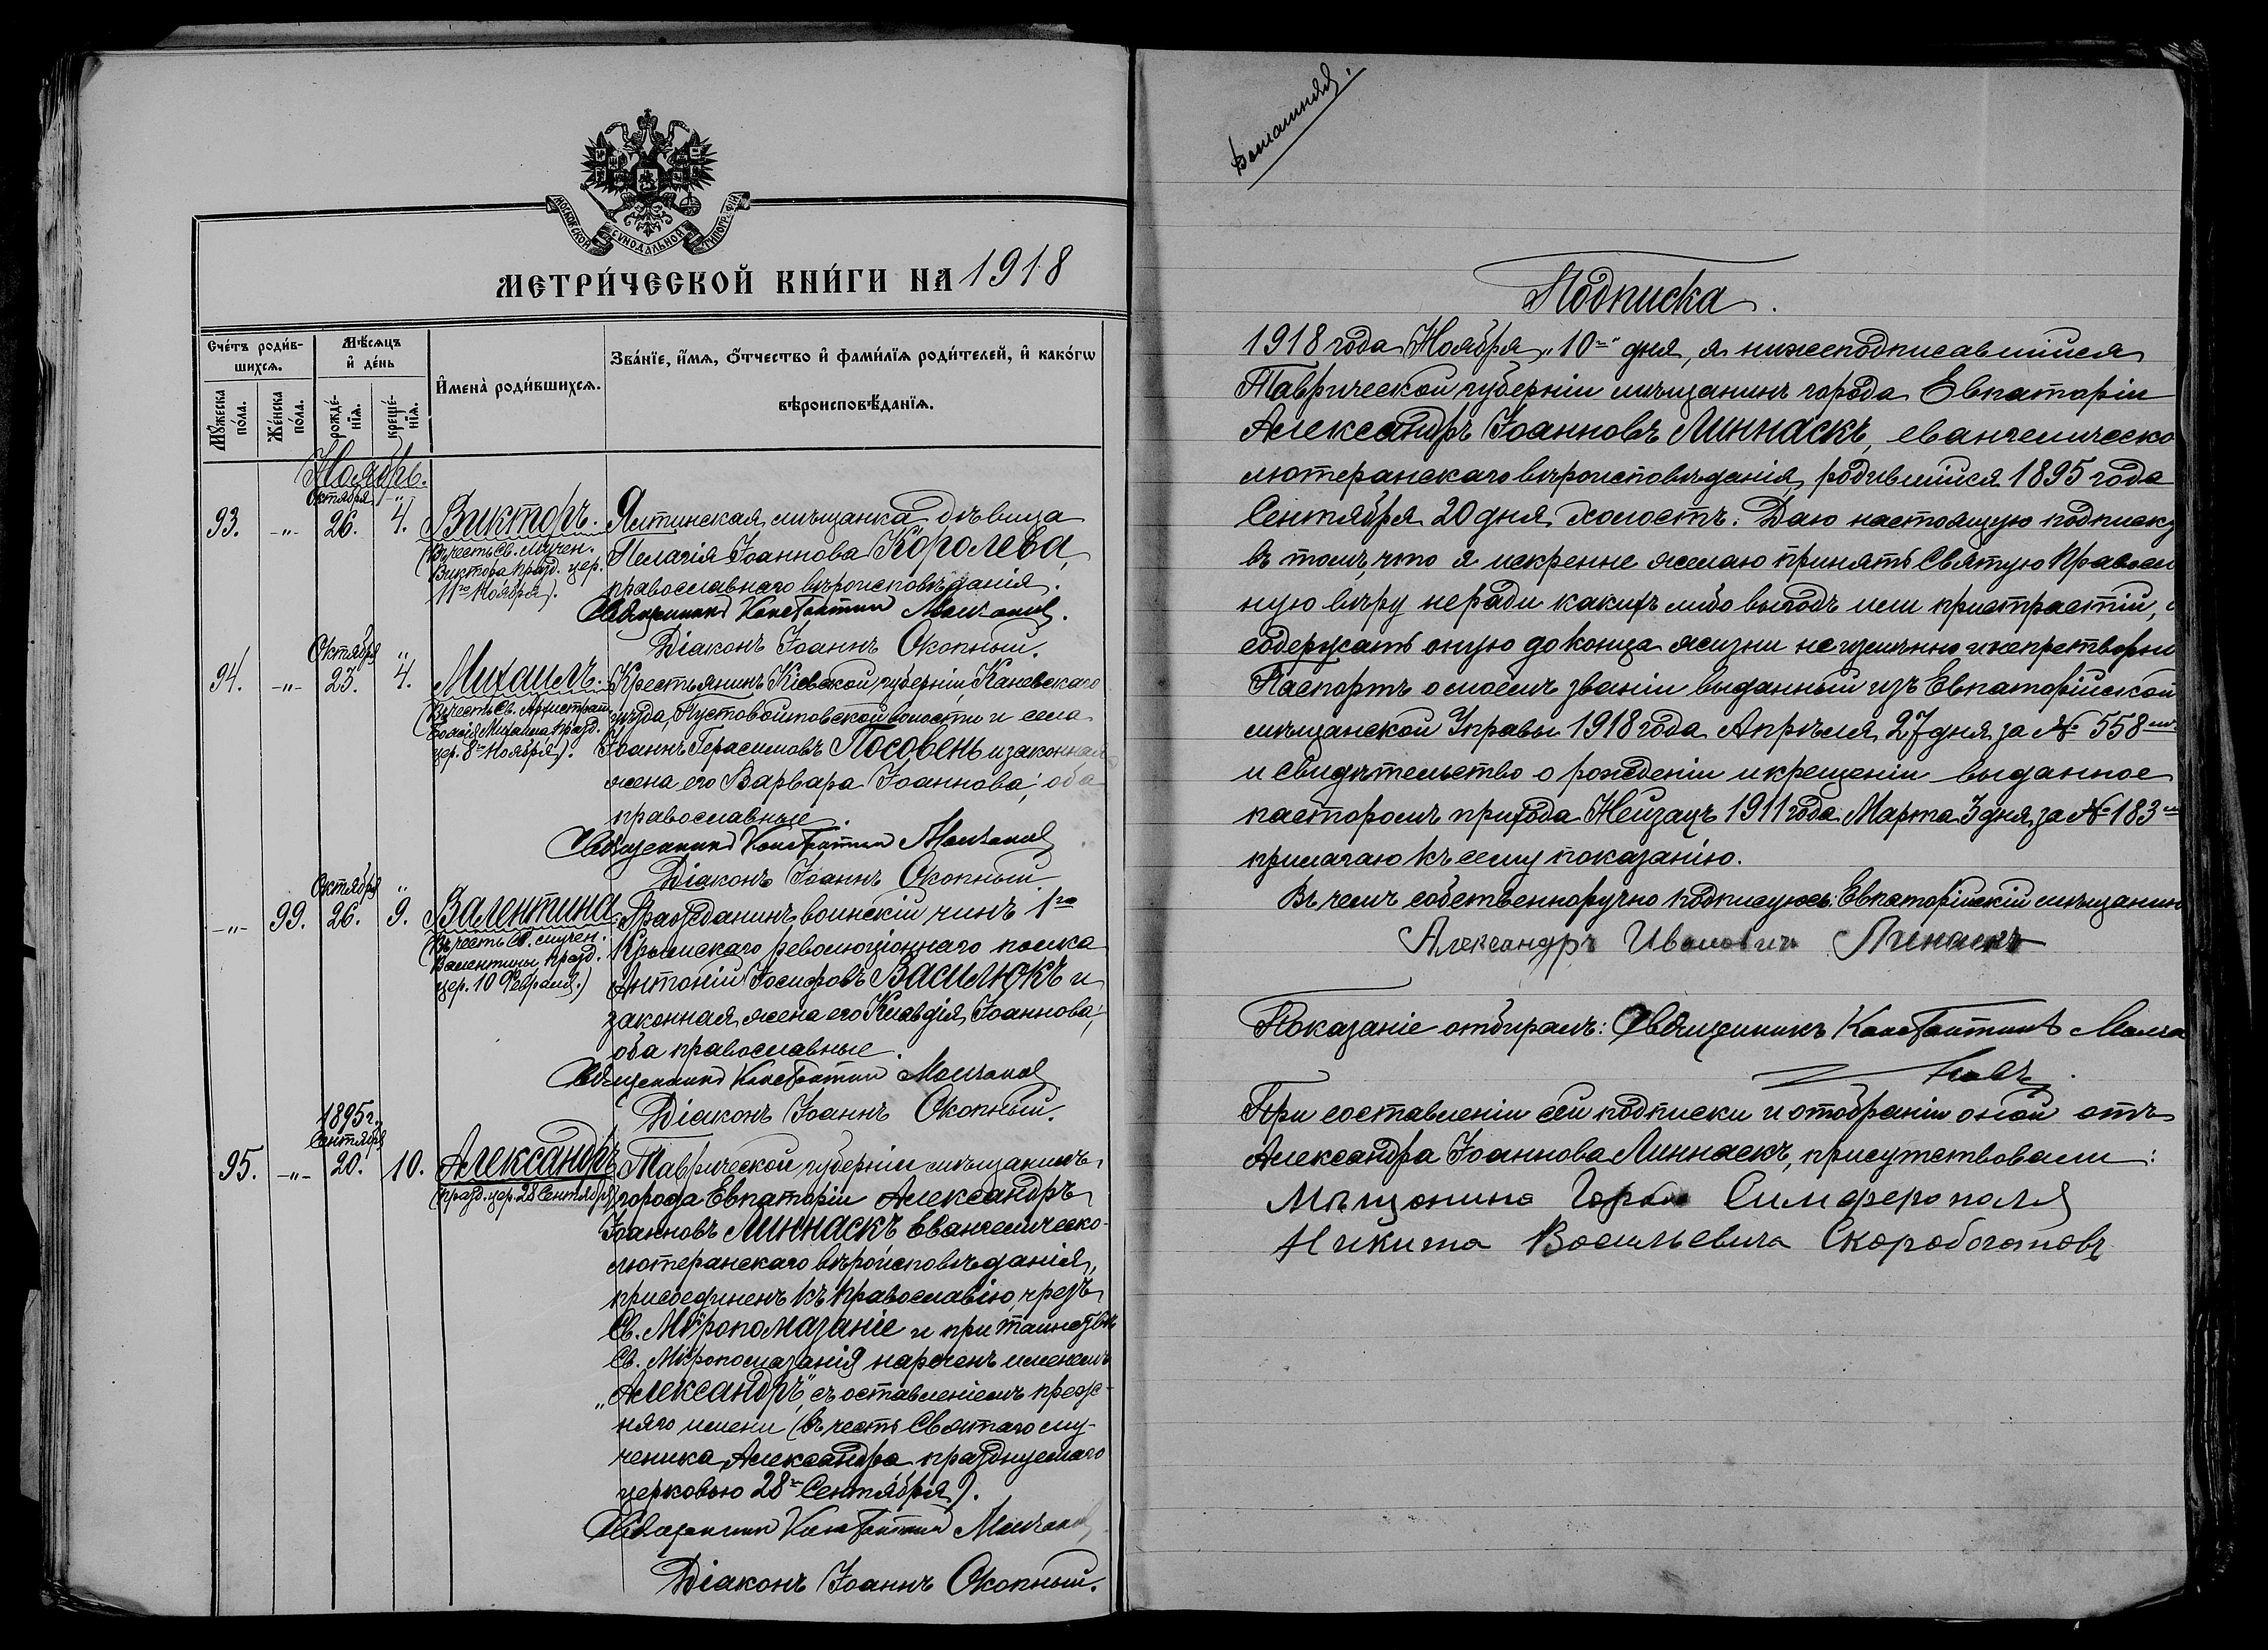 МОСКОВСКОЙ СѴНОДАЛЬНОЙ ТИПОГРАФІИ
МЕТРИ́ЧЕСКОЙ КНИ́ГИ НА 1918
Сче́тъ роди́в-
шихсѧ.
Мꙋ́жеска
по́ла.
Же́нска
по́ла.
Мѣ́сѧцъ
и҆ де́нь
рожде́-
нїѧ.
креще́-
нїѧ.
И҆мена̀ роди́вшихсѧ.
Зва́нїе, и҆́мѧ, ѻ҆́тчество и҆ фами́лїѧ роди́телей, и҆ како́гѡ
вѣроисповѣ́данїѧ.
Ноябрь.
93. -„- Октября 26. -„- 4.
Викторъ.
(Въ честь Св. мучен.
Виктора празд. цер.
11го Ноября).
Ялтинская мѣщанка дѣвица
Пелагія Іоаннова Королева,
православнаго вѣроисповѣданія.
Священникъ Константин Молчанов.
Діаконъ Іоаннъ Окопный.
94. -„- Октября 23. „ 4.
Михаилъ.
(Въ честь Св. Архистрат.
Божія Михаила празд.
цер. 8го Ноября).
Крестьянинъ Кіевской губерніи Каневскаго
уѣзда, Пустовойтовской волости и села
Іоаннъ Герасимовъ Посовень и законная
жена его Варвара Іоаннова; оба
православные.
Священникъ Константин Молчанов
Діаконъ Іоаннъ Окопный
-„- 99. Октября 26. „ 9.
Валентина
(Въ честь Св. мучен.
Валентины празд.
цер. 10 Февраля.)
Гражданинъ воинскій чинъ 1го
Крымскаго революціоннаго полка
Антоній Іосифовъ Василюкъ и
законная жена его Клавдія Іоаннова;
оба православные.
Священникъ Константин Молчанов
Діаконъ Іоаннъ Окопный.
95. -„- 1895 г. Сентября 20. 10.
Александръ
(празд. цер. 28 Сентября)
Таврической губерніи мѣщанинъ
города Евпаторіи Александръ
Іоанновъ Линнаскъ Евангелическо-
лютеранскаго вѣроисповѣданія,
присоединенъ къ православію чрезъ
Св. Мѵропомазаніе и при таинствѣ
Св. Мѵропомазанія нареченъ именемъ
„Александръ", съ оставленіемъ преж-
няго имени (въ честь Святаго му-
ченика Александра празднуемаго
церковью 28го Сентября).
Священник Константин Молчанов
Діаконъ Іоаннъ Окопный.
Подписка.
1918 года Ноября „10го" дня, я нижеподписавшійся
Таврической губерніи мѣщанинъ города Евпаторіи
Александръ Іоанновъ Линнаскъ, евангелическо
лютеранскаго вѣроисповѣданія, родившійся 1895 года
Сентября 20 дня, холостъ. Даю настоящую подписку
въ томъ, что я искренне желаю принять Святую Правосл
ную вѣру не ради какихъ либо выгодъ или пристрастій,
содержать оную до конца жизни неизмѣнно и непретворно
Паспортъ о моемъ званіи выданный изъ Евпаторійской
мѣщанской Управы 1918 года Апрѣля 27 дня за № 558мъ
и свидѣтельство о рожденіи и крещеніи выданное
пасторомъ прихода Нейзацъ 1911 года Марта 3 дня за № 183мъ
прилагаю къ сему показанію.
Въ чемъ собственноручно подписуюсь: Евпаторійскій мѣщанинъ
Александръ Ивановичъ Линаскъ
Показаніе отбиралъ: Священникъ Константинъ Молча
новъ.
При составленіи сей подписки и отобраніи оной отъ
Александра Іоаннова Линнаскъ, присутствовали:
Мѣщанина Города Симферополя
Никита Васильевича Скоробогатовъ